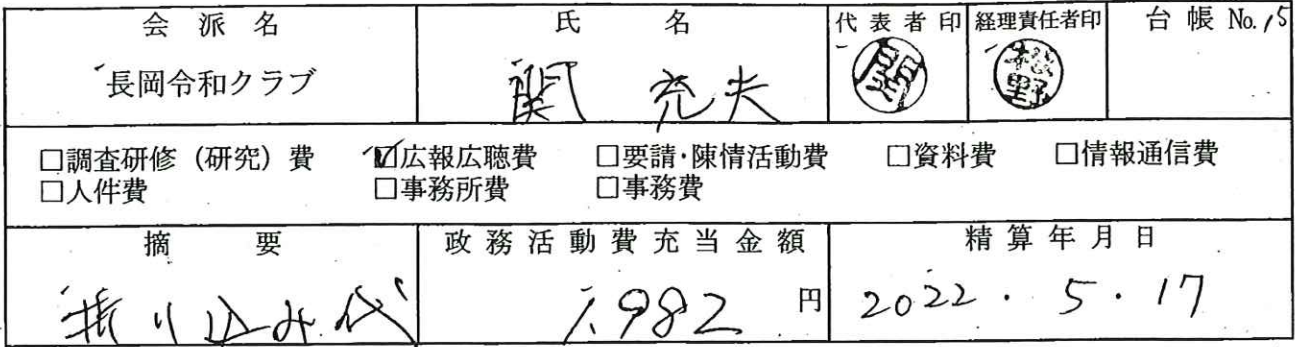 会派名 氏名 代表者印 経理責任者印 台帳 No. 15
長岡令和クラブ 関 充夫 関 松野
□調査研修（研究）費 ☑広報広聴費 □要請・陳情活動費 □資料費 □情報通信費
□人件費 □事務所費 □事務費
摘要 政務活動費充当金額 精算年月日
折り込み代 1,982 円 2022. 5. 17